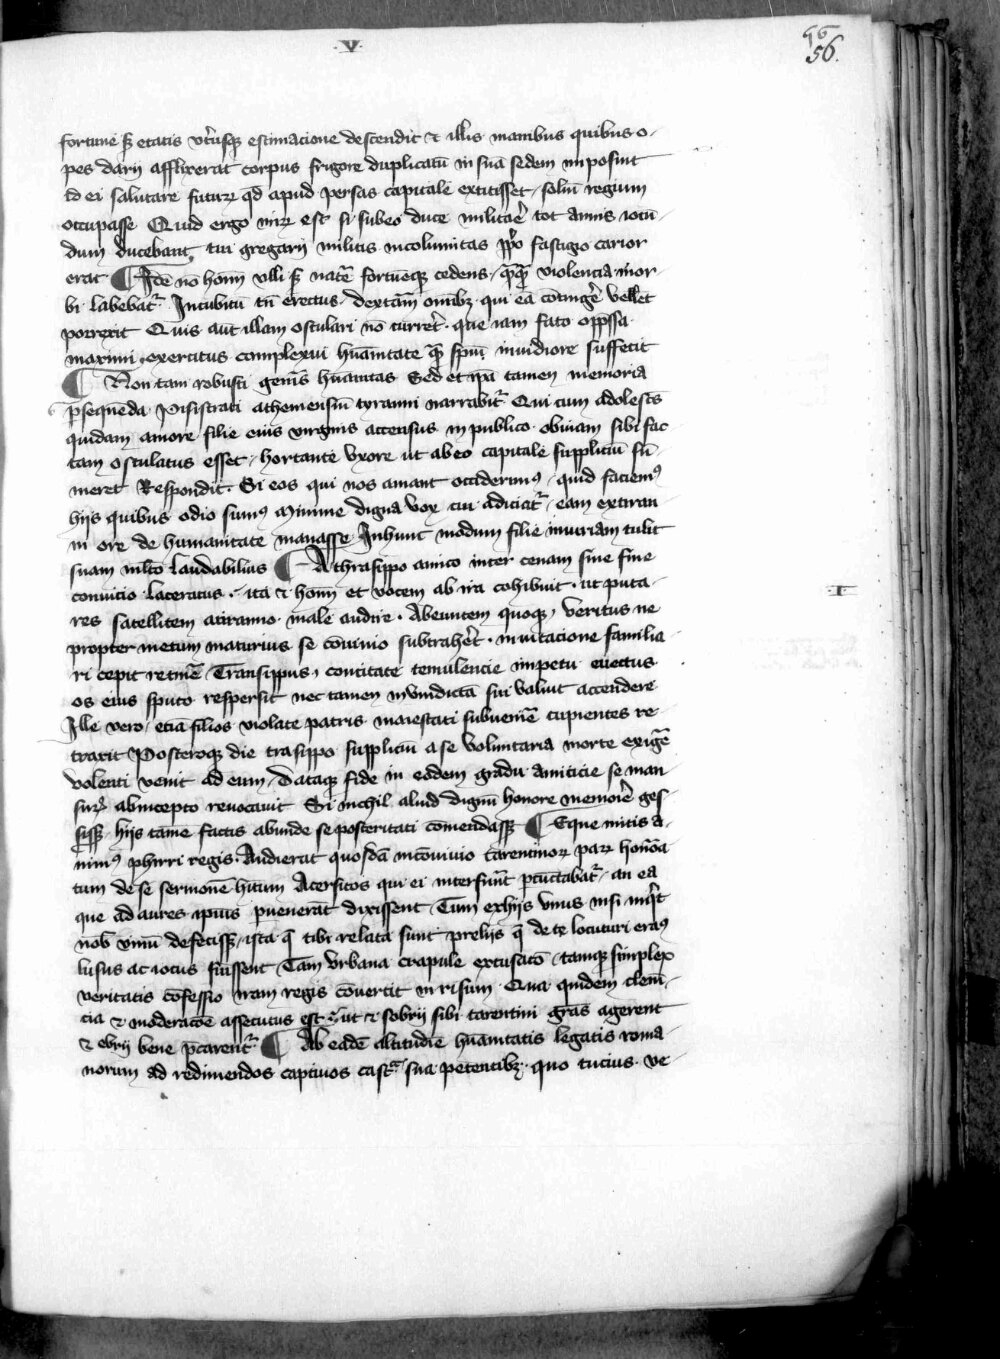 .V.
56
56.
fortune sꝫ etatis vtriusqꝫ estimacione descendit ⁊ illis manibus quibus o-
pes darij afflixerat corpus frigore duplicatū in sua sedem imposuit
id ei salutare futurꝝ qd̄ apud persas capitale extitisset / solium regium
occupasse Quid ergo mirꝝ est si sub eo duce militar̄e tot annis iocū-
dum ducebant / cui gregarij militis incolumitas ꝓpͥo fastigio carior
erat ¶ Idē nō homī vlli sꝫ nature fortuneqꝫ cedens / qͣqͣm violencia mor-
bi labebatᷣ Incubitū tn̄ erectus dextram omībꝫ qui eā cōtinge᷑ vellet
porrexit Quis aut illam osculari nō curre᷑t que iam fato opp̄ssa
maximi exercitus complexui hūanitate qͣm spū inuidiore suffecit
¶ Non tam robusti gene᷑is hūanitas Sed et ip̄a tamen memoria
ꝓsequēda Pisistrati atheniensiū tyranni narrabitᷣ Qui cum adolescēs
quidam amore filie eius virginis accensus in publico obuiam sibi fac-
tam osculatus esset / hortante vxore ut ab eo capitale suppliciū sū-
meret Respondit Si eos qui nos amant occiderimꝰ / quid faciemꝰ
hijs quibus odio sumꝰ Minime digna vox cui adiciatᷣ / eam ex tiran
ni ore de humanitate manasse Inhunc modum filie iniuriam tulit
suam mlto laudabilius ¶ A thrasippo amico inter cenam sine fine
conuicio laceratus / ita ⁊ homī et vocem ab ira cohibuit ut puta-
res satellitem a tiranno male audire Abeuntem quoqꝫ veritus ne
propter metum maturius se cōuiuio subtrahe᷑t inuitacione familia-
ri cepit retinē Transippus / concitate temulencie impetu euectus
os eius sputo respersit nec tamen in vindictā sui valuit accendere
Ille vero / etiā filios violate patris maiestati subuenire cupientes re
traxit Posteroqꝫ die trasippo suppliciū a se voluntaria morte exigē
volenti venit ad eum / Dataqꝫ fide in eodem gradu amicicie se man
surꝝ ab incepto reuocauit Si nichil aliud dignū honore memorie ges-
sissꝫ / hijs tame factis abunde se posteritati cōmendassꝫ ¶ Eque mitis a-
nimꝰ phirri regis Audierat quosdā in cōuiuio tarentinorꝝ parꝝ honōa
tum de se sermonē hītum Acersitos qui ei interfuīt pcūctabatᷣ / an ea
que ad aures ipius ꝑuenerāt dixissent Tum ex hijs vnus nisi inqͥt
nob̄ vinū defecissꝫ / ista qͣ tibi relata sunt prelijs qͣ de te locuturi eramꝰ
lusus ac iocus fuissent Tam vrbana crapule excusacō / tamqꝫ simplex
veritatis cōfessio iram regis cōuertit in risum Qua quidem clemē-
cia ⁊ moderacōe assecutus est / ut ⁊ sobrij sibi tarentini grās agerent
⁊ ebrij bene p̄carentᷣ ¶ Ab eadē altitudīe hūanitatis legatis roma-
norum ad redimendos captiuos castra sua petentibꝫ / quo tucius ve
·I·